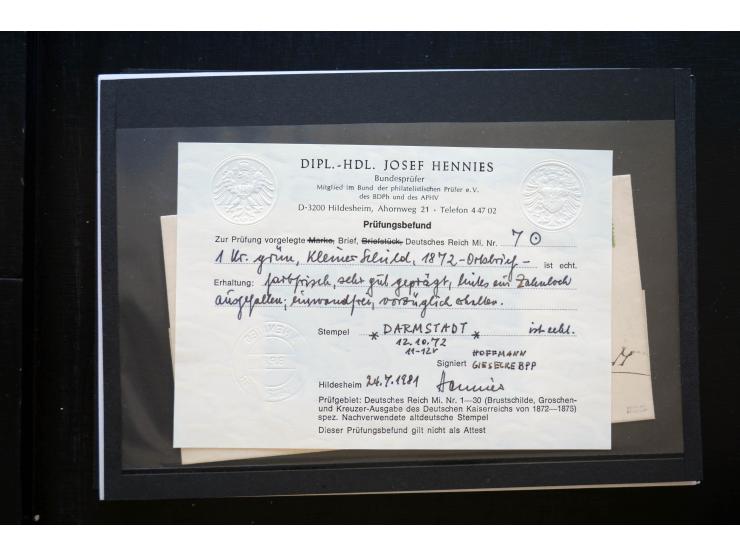 DIPL.-HDL. JOSEF HENNIES
Bundesprüfer
Mitglied im Bund der philatelistischen Prüfer e.V.
des BDPh und des APHV
D-3200 Hildesheim, Ahornweg 21 • Telefon 4 47 02
Prüfungsbefund
Zur Prüfung vorgelegte Marke, Brief, Briefstück, Deutsches Reich Mi. Nr. 7
1 Kr. grün, Kleiner Schild, 1872 - Ortsbrief - ist echt.
Erhaltung: farbfrisch, sehr gut geprägt, links ein Zahnloch
ausgefallen, einwandfrei, vorzüglich erhalten.
Stempel * DARMSTADT * ist echt.
12.10.72
11-12V HOFFMANN
Signiert GIESELRE BPP
Hildesheim 24.7.1981 Hennies
Prüfgebiet: Deutsches Reich Mi. Nr. 1—30 (Brustschilde, Groschen-
und Kreuzer-Ausgabe des Deutschen Kaiserreichs von 1872—1875)
spez. Nachverwendete altdeutsche Stempel
Dieser Prüfungsbefund gilt nicht als Attest